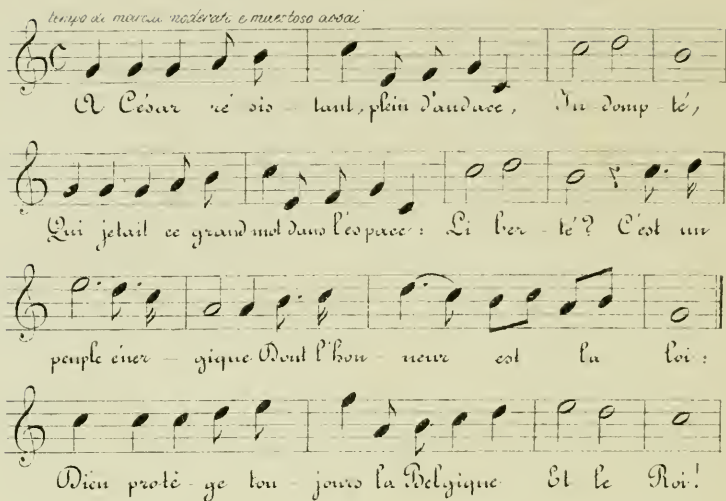 tempo di marcia moderato e maestoso assai
A César ré sis - tant, plein d'audace, In-domp-té,
Qui jetait ce grand mot dans l'espace: Li ber-té? C'est un
peuple éner - gique Dont l'hon - neur est la loi:
Dieu protè-ge tou-jours la Belgique Et le Roi!